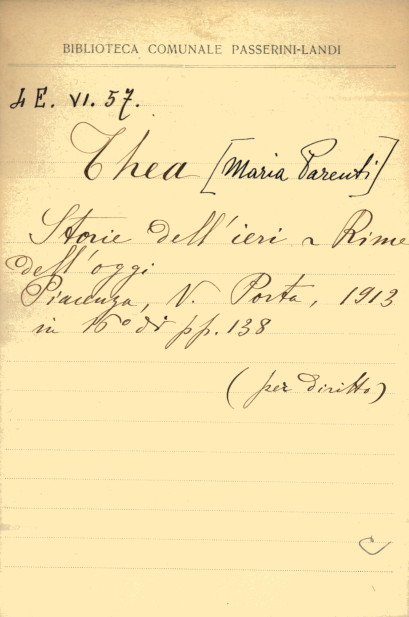 BIBLIOTECA COMUNALE PASSERINI-LANDI
4 E. VI. 57.
Thea [Maria Parenti]
Storie dell'ieri e Rime
dell'oggi
Piacenza, N. Porta, 1913
in 16° di pp. 138
(per diritto)